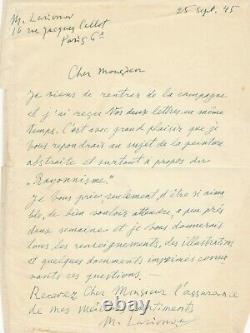 M. Larionow
16 rue Jacques Callot
Paris 6e
25 Sept. 45
Cher Monsieur
Je viens de rentrer de la campagne
et j'ai reçu vos deux lettres en même
temps. C'est avec grand plaisir que je
vous repondrais au sujet de la peinture
abstraite et surtout à propos du
"Rayonnisme."
Je vous prie seulement d'être si aima-
ble, de bien vouloir attendre, a peu près
deux semaines et je vous donnerais
tous les renseignements, des illustrations
et quelques documents imprimés concer-
nants ces questions. —
Recevez Cher Monsieur l'assurance
de mes meilleurs sentiments
M. Larionow